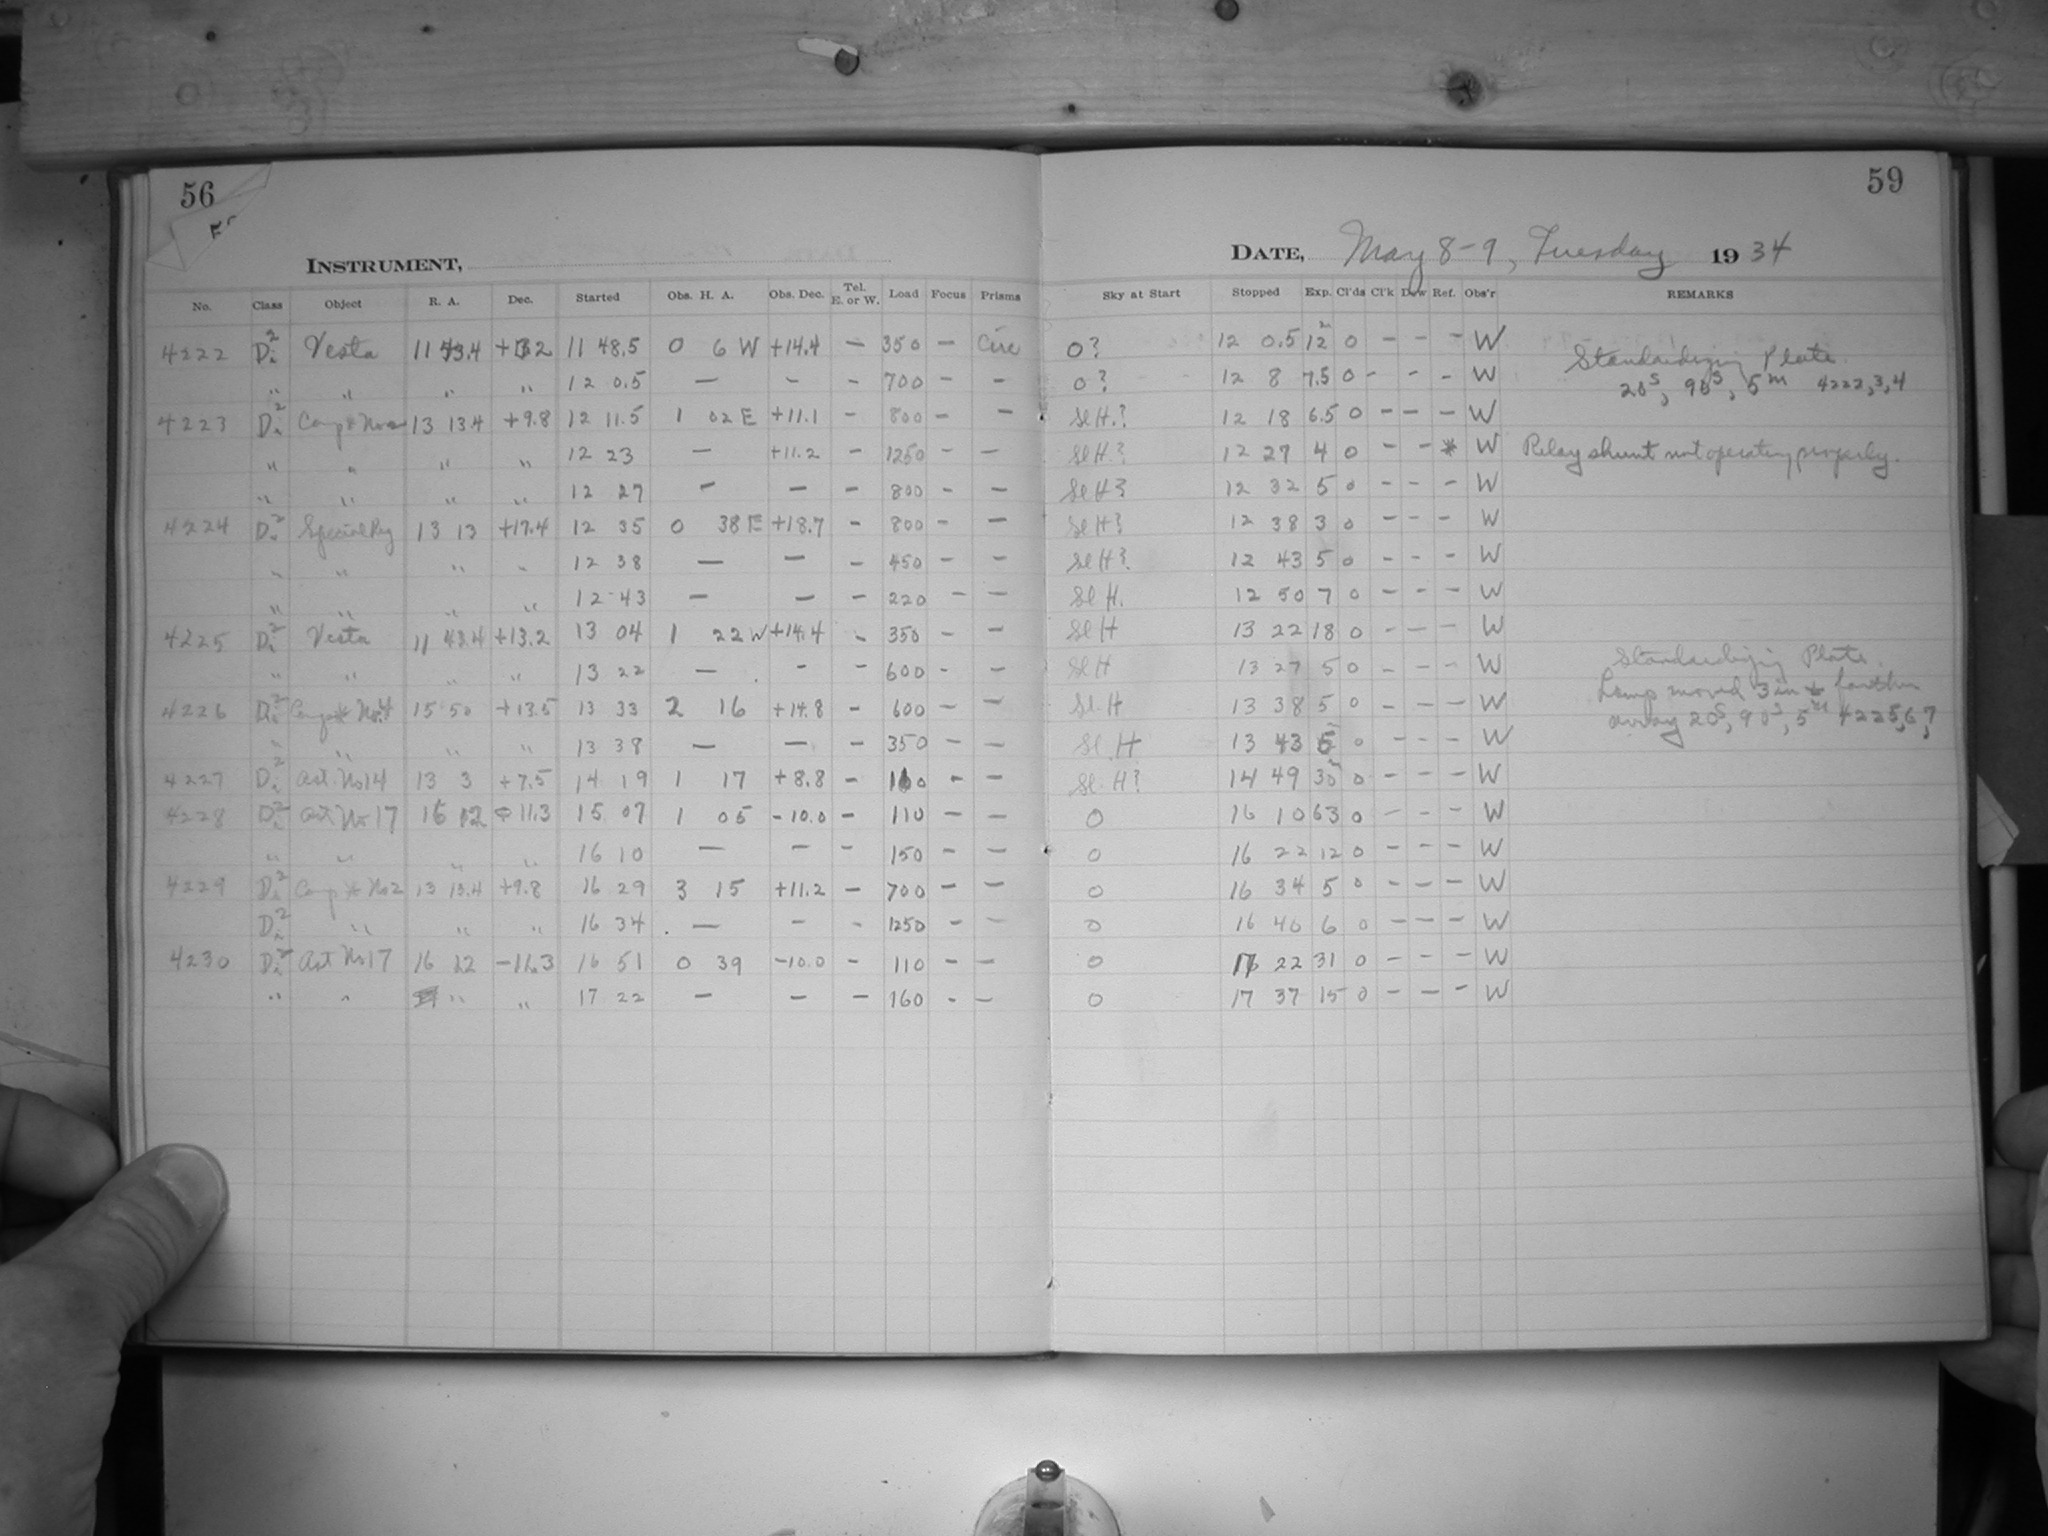 56
59
INSTRUMENT,
DATE, May 8-9, Tuesday 1934
No. Class Object R. A. Dec. Started Obs. H. A. Obs. Dec. Tel. E. or W. Load Focus Prisms Sky at Start Stopped Exp. Cl'ds Cl'k Dew Ref. Obs'r REMARKS
4222 Di2 Vesta 11 43.4 +13.2 11 48.5 0 6 W +14.4 — 350 — Circ 0? 12 0.5 12 0 – – – W Standardizing Plate
" " " " 12 0.5 — – – 700 – – 0? 12 8 7.5 0 – – – W 20s, 90s, 5m 4222,3,4
4223 Di2 Comp * No 2 13 13.4 +9.8 12 11.5 1 02 E +11.1 – 800 – – Sl H.? 12 18 6.5 0 – – – W
" " " " 12 23 — +11.2 – 1250 – – Sl H.? 12 27 4 0 – – * W Relay shunt not operating properly.
" " " " 12 27 – – – 800 – – Sl H? 12 32 5 0 – – – W
4224 Di2 Special Reg 13 13 +17.4 12 35 0 38 E +18.7 – 800 – – Sl H? 12 38 3 0 – – – W
" " " " 12 38 — — – 450 – – Sl H?. 12 43 5 0 – – – W
" " " " 12 43 — — – 220 – – Sl H. 12 50 7 0 – – – W
4225 Di2 Vesta 11 43.4 +13.2 13 04 1 22 W +14.4 – 350 – – Sl H 13 22 18 0 – – – W
" " " " 13 22 — – – 600 – – Sl H 13 27 5 0 – – – W Standardizing Plate.
4226 Di2 Comp * No. 4 15 50 +13.5 13 33 2 16 +14.8 – 600 – – Sl. H 13 38 5 0 – – – W Lamp moved 3 in farther
" " " " 13 38 — — – 350 – – Sl. H 13 43 5 0 – – – W away 20s, 90s, 5m 4225,6,7
4227 Di2 Ast. No 14 13 3 +7.5 14 19 1 17 +8.8 – 160 – – Sl. H? 14 49 30 0 – – – W
4228 Di2 Ast No 17 16 12 –11.3 15 07 1 05 –10.0 – 110 – – 0 16 10 63 0 – – – W
" " " " 16 10 — – – 150 – – 0 16 22 12 0 – – – W
4229 Di2 Comp * No 2 13 13.4 +9.8 16 29 3 15 +11.2 – 700 – – 0 16 34 5 0 – – – W
Di2 " " " 16 34 — – – 1250 – – 0 16 40 6 0 – – – W
4230 Di2 Ast No 17 16 12 –11.3 16 51 0 39 –10.0 – 110 – – 0 17 22 31 0 – – – W
" " " " 17 22 — — – 160 – – 0 17 37 15 0 – – – W